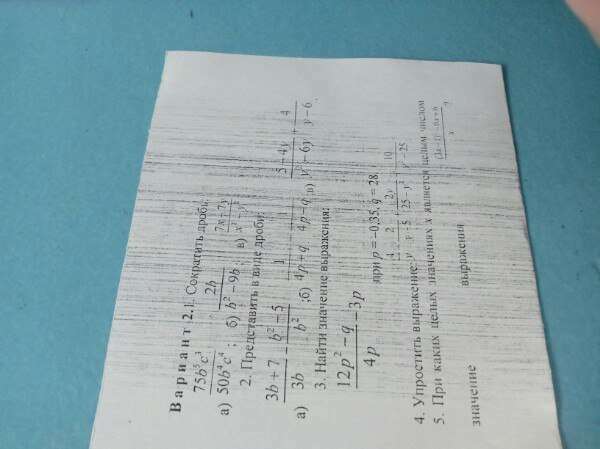 Вариант 2. 1. Сократить дроби:
а) 75b⁵c³/50b⁴c⁴ ; б) 2b/b² − 9b ; в) 7x − 7y/x² − y²
2. Представить в виде дроби:
а) 3b + 7/3b − b² − 5/b² ; б) 1/4p + q − 1/4p − q ; в) 5 − 4y/y² − 6y + 4/y − 6 .
3. Найти значение выражения:
12p² − q/4p − 3p при p = −0,35, q = 28
4. Упростить выражение:
5. При каких целых значениях x является целым числом
значение выражения